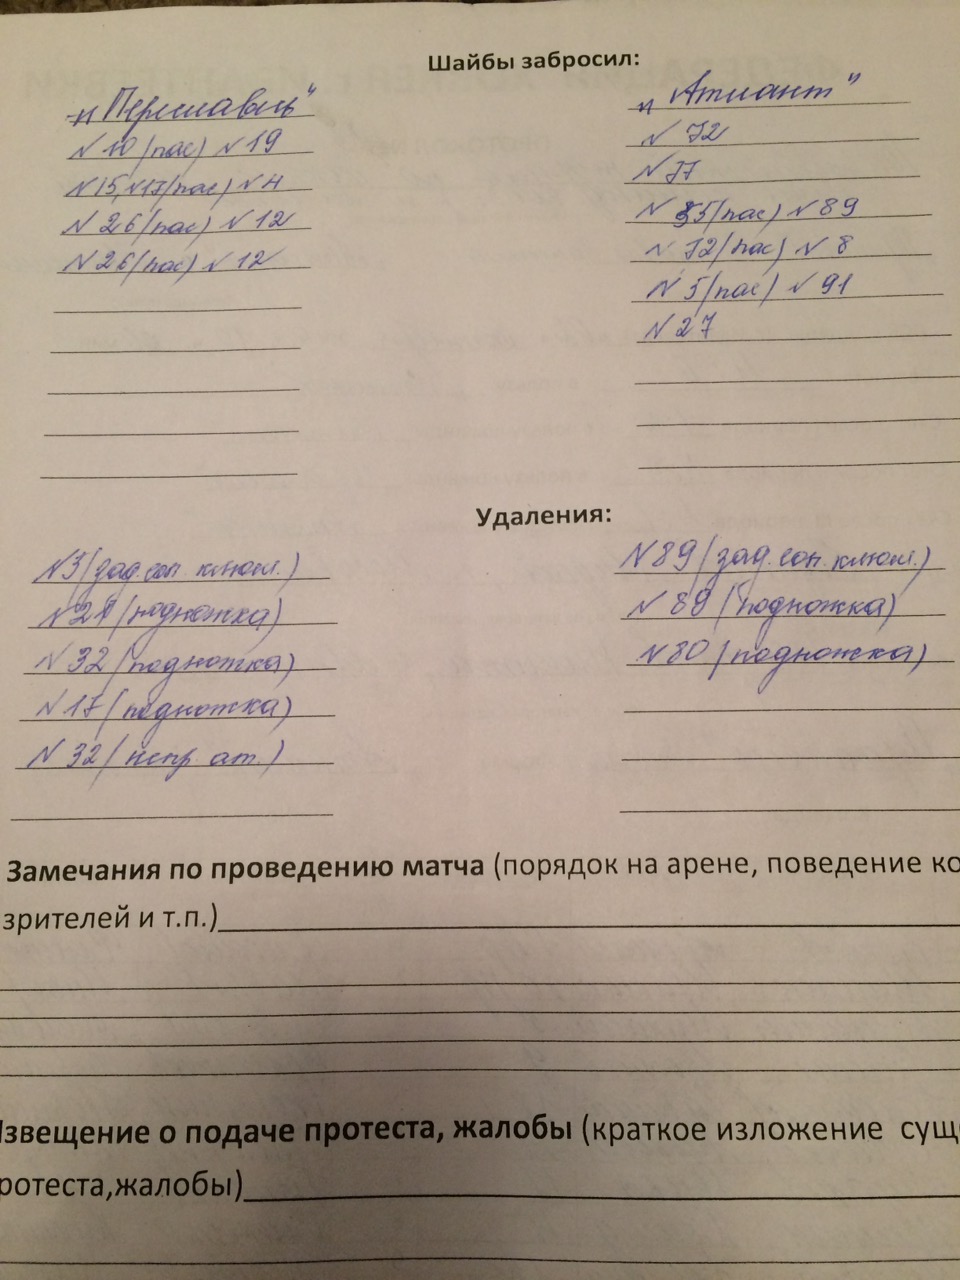 Шайбы забросил:
"Переславль"
№10(пас) №19
№15,№17(пас) №4
№26(пас) №12
№26(пас) №12
"Атлант"
№72
№77
№35(пас) №89
№72(пас) №8
№5(пас) №91
№27
Удаления:
№3(зад.соп. клюш.)
№21(подножка)
№32(подножка)
№17(подножка)
№32(непр. ат.)
№89(зад.соп.клюш.)
№89(подножка)
№80(подножка)
Замечания по проведению матча (порядок на арене, поведение ко
зрителей и т.п.)
Извещение о подаче протеста, жалобы (краткое изложение сущ
ротеста,жалобы)